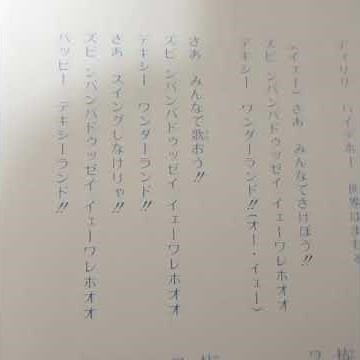 ディリリ ハイ・ホー 世界はまわる
(イェー)さあ みんなでさけぼう!!
ズビ ンバンバドゥッゼイ イェーワレホオオ
デキシー ワンダーランド!!(オー・イェー)
さあ みんなで歌おう!!
ズビ ンバンバドゥッゼイ イェーワレホオオ
デキシー ワンダーランド!!
さあ スイングしなけりゃ!!
ズビ ンバンバドゥッゼイ イェーワレホオオ
ハッピー デキシーランド!!